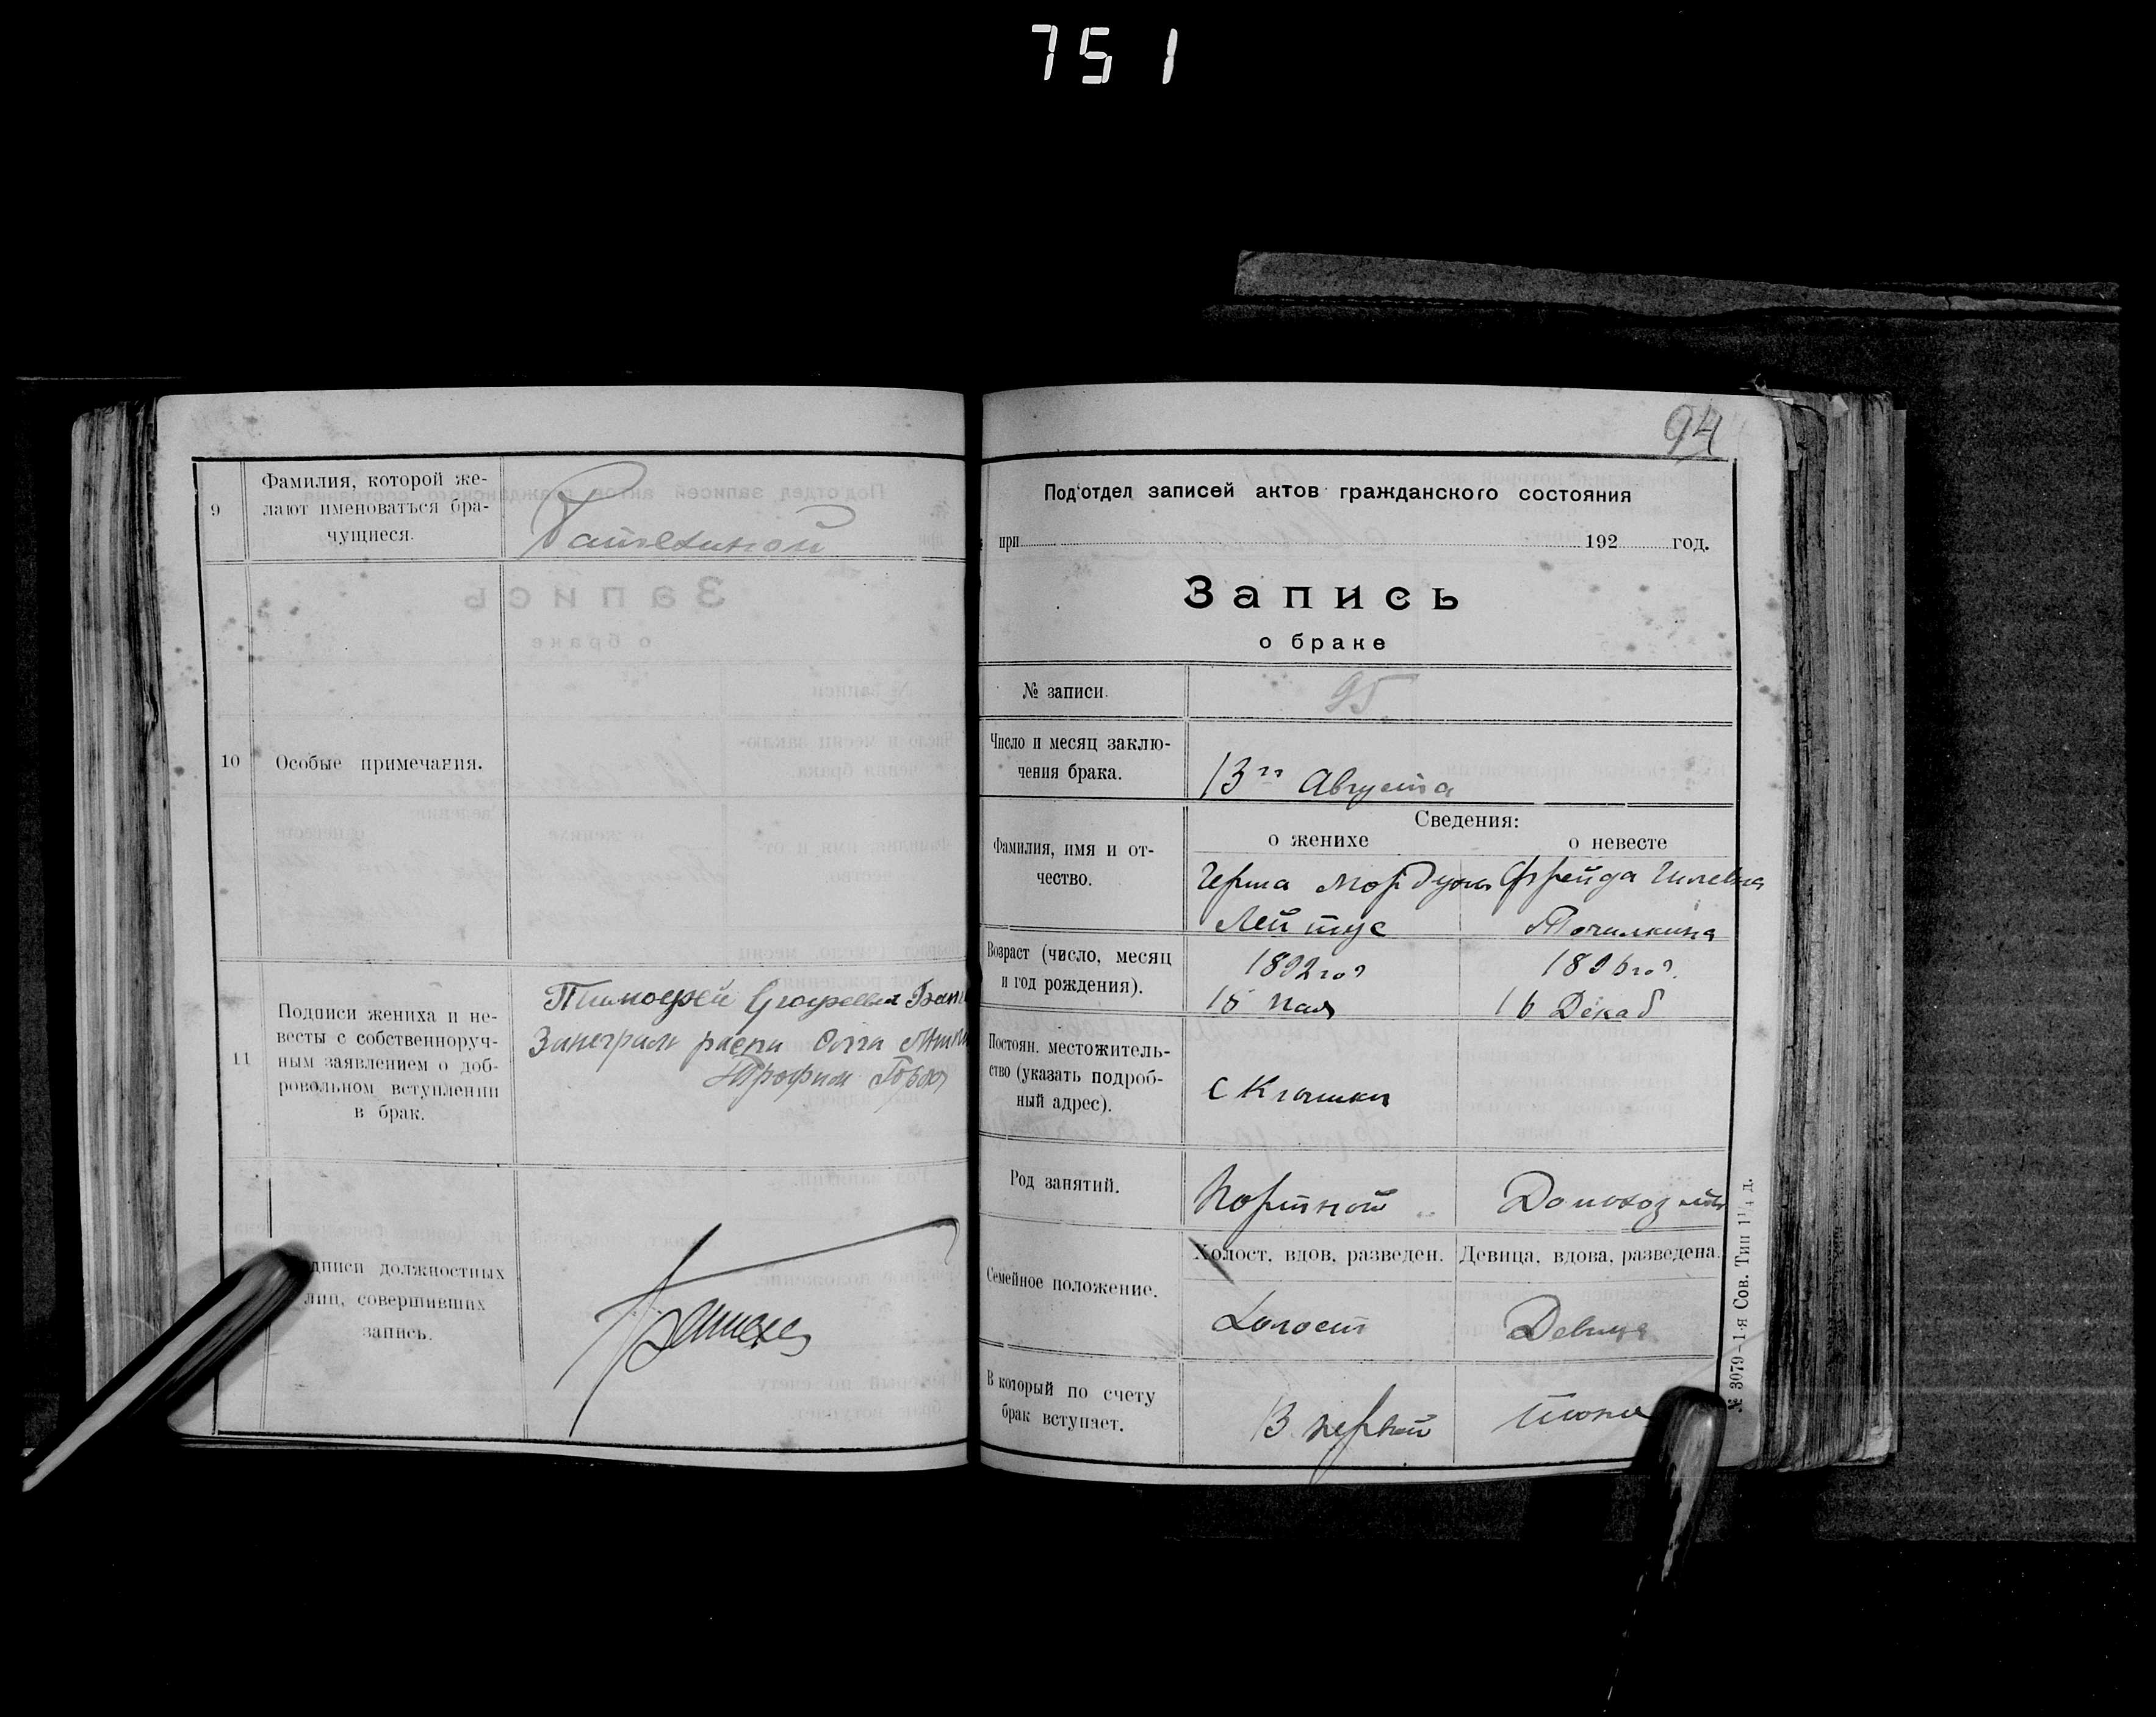 751
9
Фамилия, которой же-
лают именоваться бра-
чущиеся.
10
Особые примечания.
11
Подписи жениха и не-
весты с собственноруч-
ным заявлением о доб-
ровольном вступлении
в брак.
Тимофей
Трофим
дписи должностных
лиц, совершивших
запись.
94
Под'отдел записей актов гражданского состояния
при 192 год.
Запись
о браке
№ записи.
95
Число и месяц заклю-
чения брака.
13го Августа
Сведения:
о женихе
о невесте
Фамилия, имя и от-
чество.
Мордухов Фрейда Гилевна
Лейтус
Точилкина
Возраст (число, месяц
и год рождения).
1892 го
15 мая
1896 го
16 Декаб
Постоян. местожитель-
ство (указать подроб-
ный адрес).
с
Род занятий.
Портной
Домохоз
Семейное положение.
Холост, вдов, разведен.
Девица, вдова, разведена.
Холост
Девица
В который по счету
брак вступает.
В первый
тоже
№ 3079–1-я Сов. Тип 1¼ д.